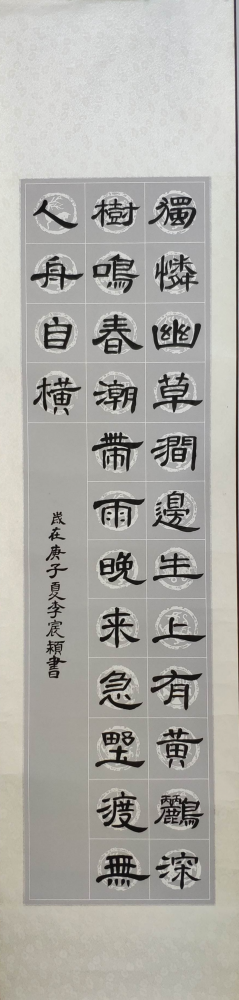 獨憐幽草澗邊生上有黃鸝深
樹鳴春潮帶雨晚来急野渡無
人舟自橫
歲在庚子夏李宸穎書